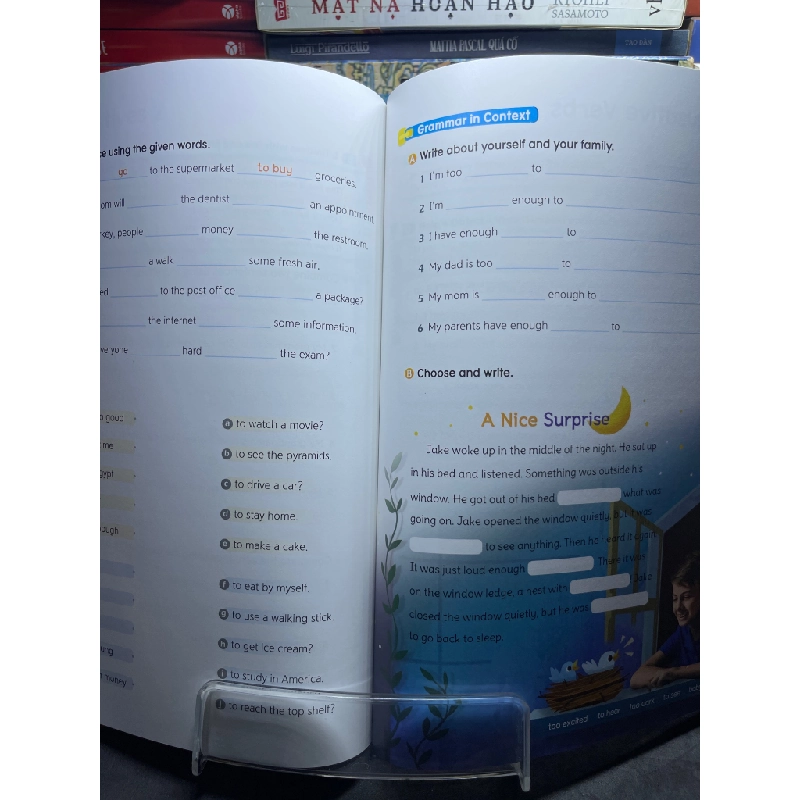 MẶT NẠ HOÀN HẢO
KYOHEI
SASAMOTO
Luigi Pirandello
MATTIA PASCAL QUÁ CỐ
TAO ĐÀN
using the given words.
go to the supermarket to buy groceries.
om will ____ the dentist ____ an appointment
key, people ____ money ____ the restroom.
____ a walk ____ some fresh air.
ed ____ to the post office ____ a package?
____ the internet ____ some information.
ve you ____ hard ____ the exam?
a good
me
gypt
ough
ong
money
a to watch a movie?
b to see the pyramids.
c to drive a car?
d to stay home.
e to make a cake.
f to eat by myself.
g to use a walking stick.
h to get ice cream?
i to study in America.
j to reach the top shelf?
Grammar in Context
A Write about yourself and your family.
1 I'm too ____ to ____
2 I'm ____ enough to ____
3 I have enough ____ to ____
4 My dad is too ____ to ____
5 My mom is ____ enough to ____
6 My parents have enough ____ to ____
B Choose and write.
A Nice Surprise
Jake woke up in the middle of the night. He sat up
in his bed and listened. Something was outside his
window. He got out of his bed ____ what was
going on. Jake opened the window quietly, but it was
____ to see anything. Then he heard it again.
It was just loud enough ____. There it was
on the window ledge, a nest with ____! Jake
closed the window quietly, but he was ____
to go back to sleep.
too excited to hear too dark to see